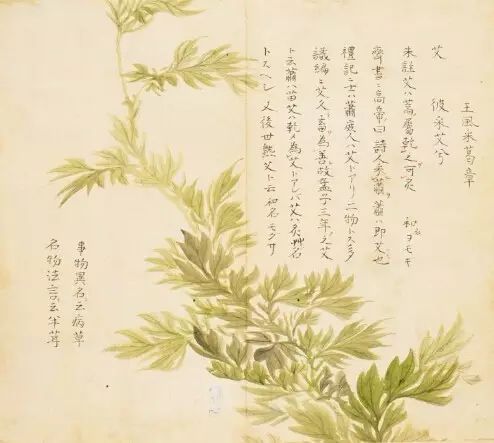 王風采葛章
艾 彼采艾兮
朱註艾ハ蒿屬乾之可灸 和名ヨモキ
齊書ニ高帝曰詩人采蕭蕭ハ即艾也
禮記ニ士ハ蕭庶人ハ艾トアリ二物トス
識編ニ艾久畜為善故孟子三年之艾
ト云蕭ハ苗艾ハ乾〆為艾トアレバ艾ハ灸艸名
トスヘシ 又後世熟艾ト云和名モクサ
事物異名云病草
名物法言云半